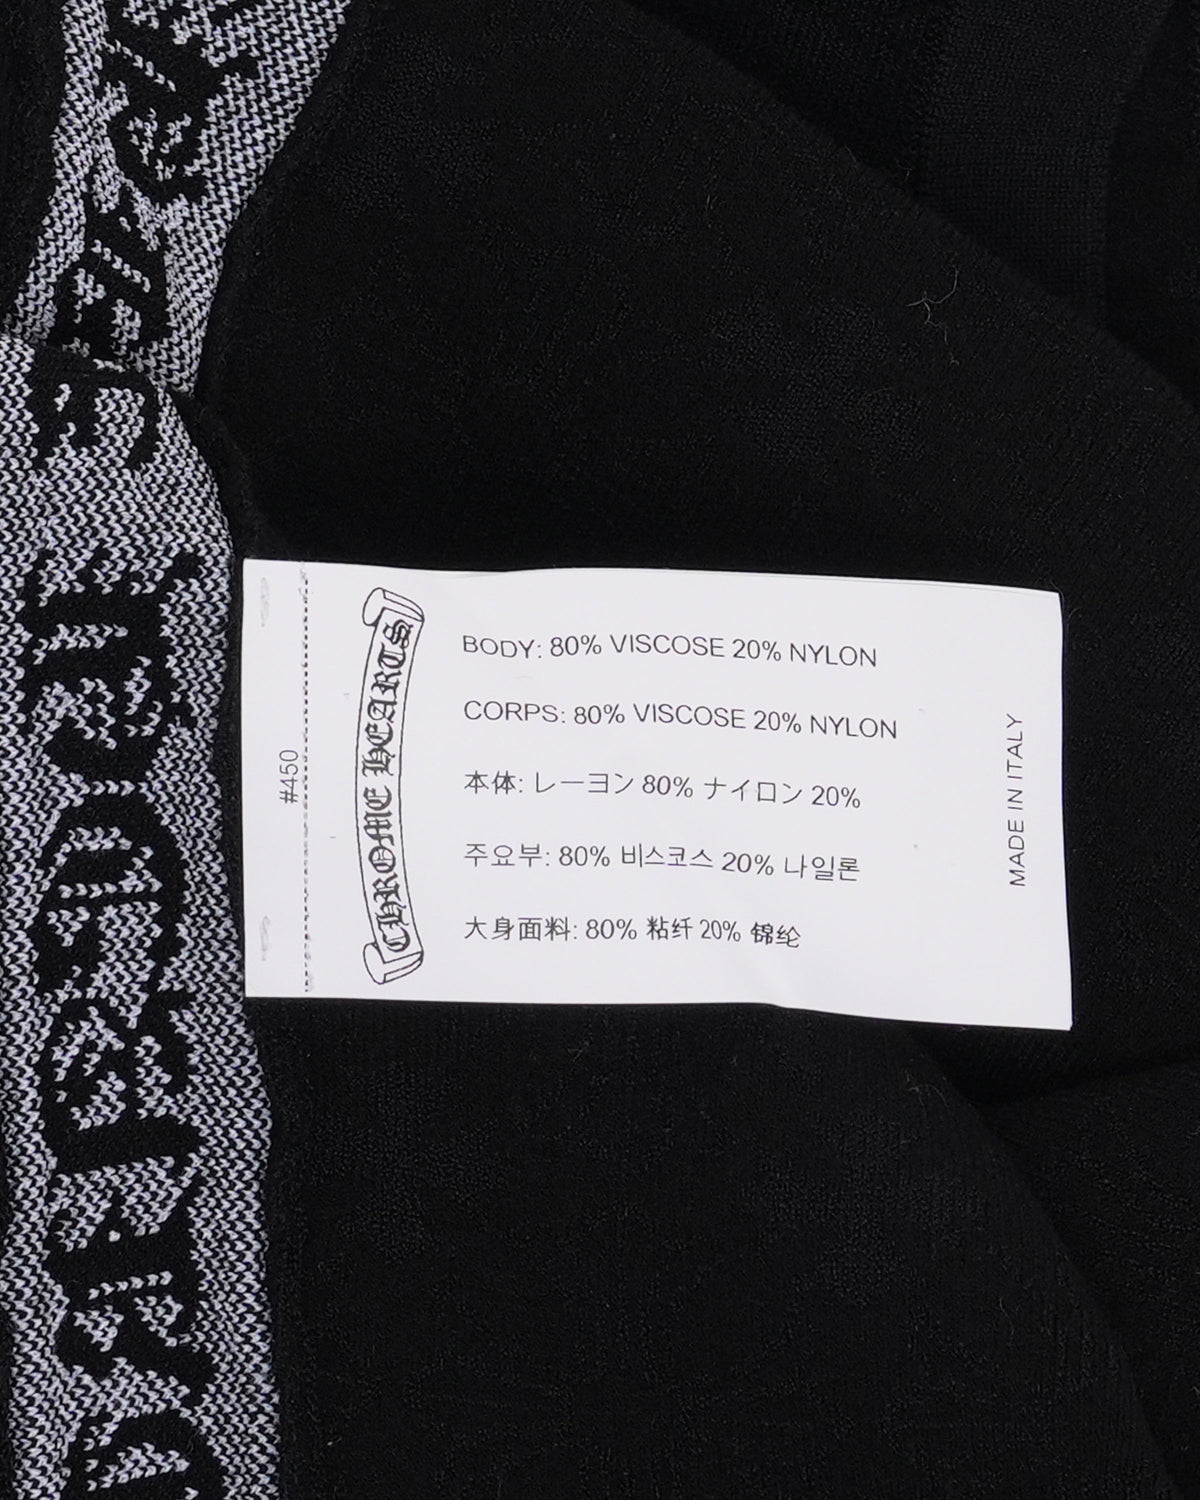 #450
CHROME HEARTS
BODY: 80% VISCOSE 20% NYLON
CORPS: 80% VISCOSE 20% NYLON
本体: レーヨン 80% ナイロン 20%
주요부: 80% 비스코스 20% 나일론
大身面料: 80% 粘纤 20% 锦纶
MADE IN ITALY